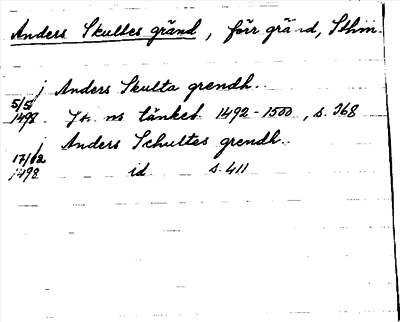 Anders Skultes gränd, förr gränd, Sthm.
j Anders Skulta grendh..
5/5
1498. St. ns tänkeb. 1492-1500, s. 368
j Anders Schultes grendh..
17/12
1498 id s. 411